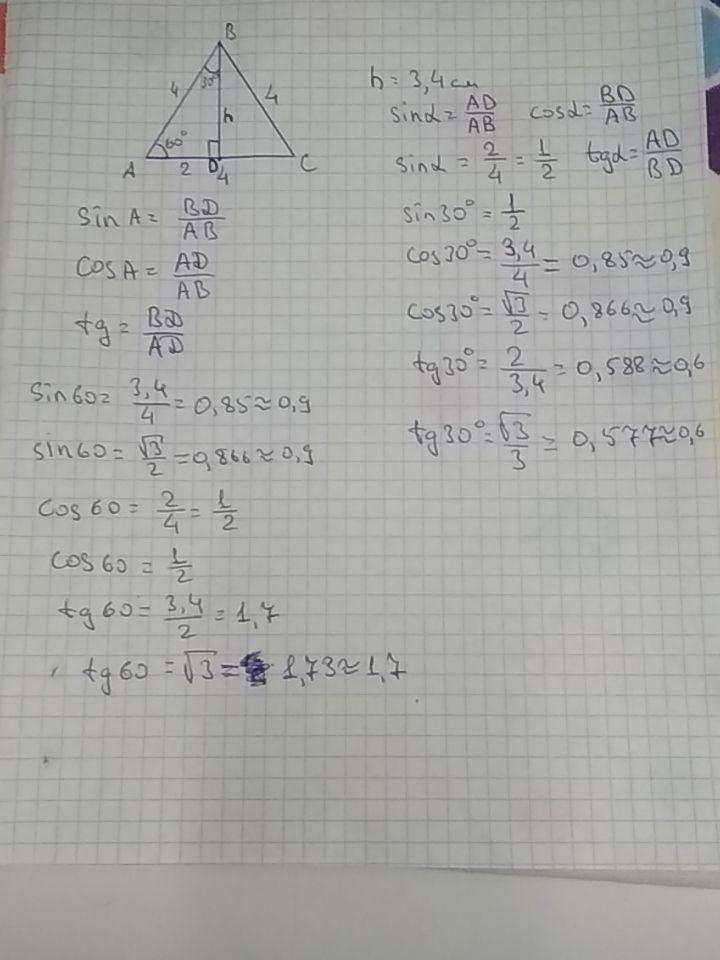 B
4 30° 4
h
60°
A 2 D 4 C
sin A = BD/AB
cos A = AD/AB
tg = BD/AD
sin 60 = 3,4/4 = 0,85 ≈ 0,9
sin 60 = √3/2 = 0,866 ≈ 0,9
cos 60 = 2/4 = 1/2
cos 60 = 1/2
tg 60 = 3,4/2 = 1,7
tg 60 = √3 = 1,73 ≈ 1,7
h = 3,4 см
sin α = AD/AB cos α = BD/AB
sin α = 2/4 = 1/2 tg α = AD/BD
sin 30° = 1/2
cos 30° = 3,4/4 = 0,85 ≈ 0,9
cos 30° = √3/2 = 0,866 ≈ 0,9
tg 30° = 2/3,4 = 0,588 ≈ 0,6
tg 30° = √3/3 = 0,577 ≈ 0,6